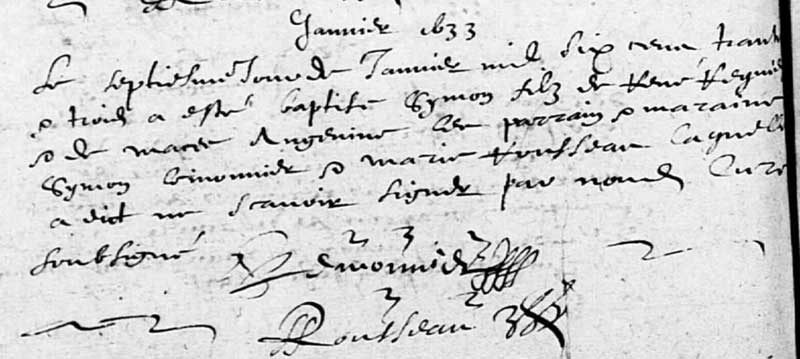 Janvier 1633
Le septiesme Jour de Janvier mil six cens trante
& trois a esté baptisé Symon filz de René Regnier
& de Macee Angevine les parrain & maraine
Symon Lemonnier & Marie Rousseau laquelle
a dict ne scavoir signer par nous Curé
soubsigné
Lemonnier
Rousseau